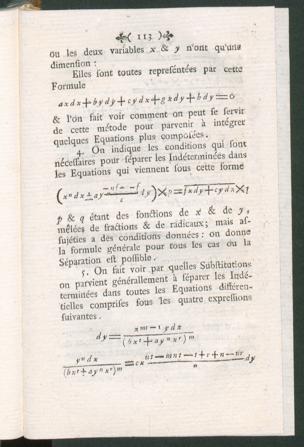 ( 113 )
ou les deux variables x & y n'ont qu'une
dimenſion :
Elles ſont toutes repreſéntées par cette
Formule
axdx+bydy+cydx+gxdy+hdy=0
& l'on fait voir comment on peut ſe ſervir
de cette méthode pour parvenir à intégrer
quelques Equations plus compoſées.
4. On indique les conditions qui ſont
néceſſaires pour ſéparer les Indéterminées dans
les Equations qui viennent ſous cette forme
p & q étant des fonctions de x & de y,
mêlées de fractions & de radicaux; mais aſ-
ſujéties a des conditions données: on donne
la formule générale pour tous les cas ou la
Séparation eſt poſſible.
5. On fait voir par quelles Subſtitutions
on parvient générallement à ſéparer les Indé-
terminées dans toutes les Equations différen-
tielles compriſes ſous les quatre expreſſions
ſuivantes.
dy =